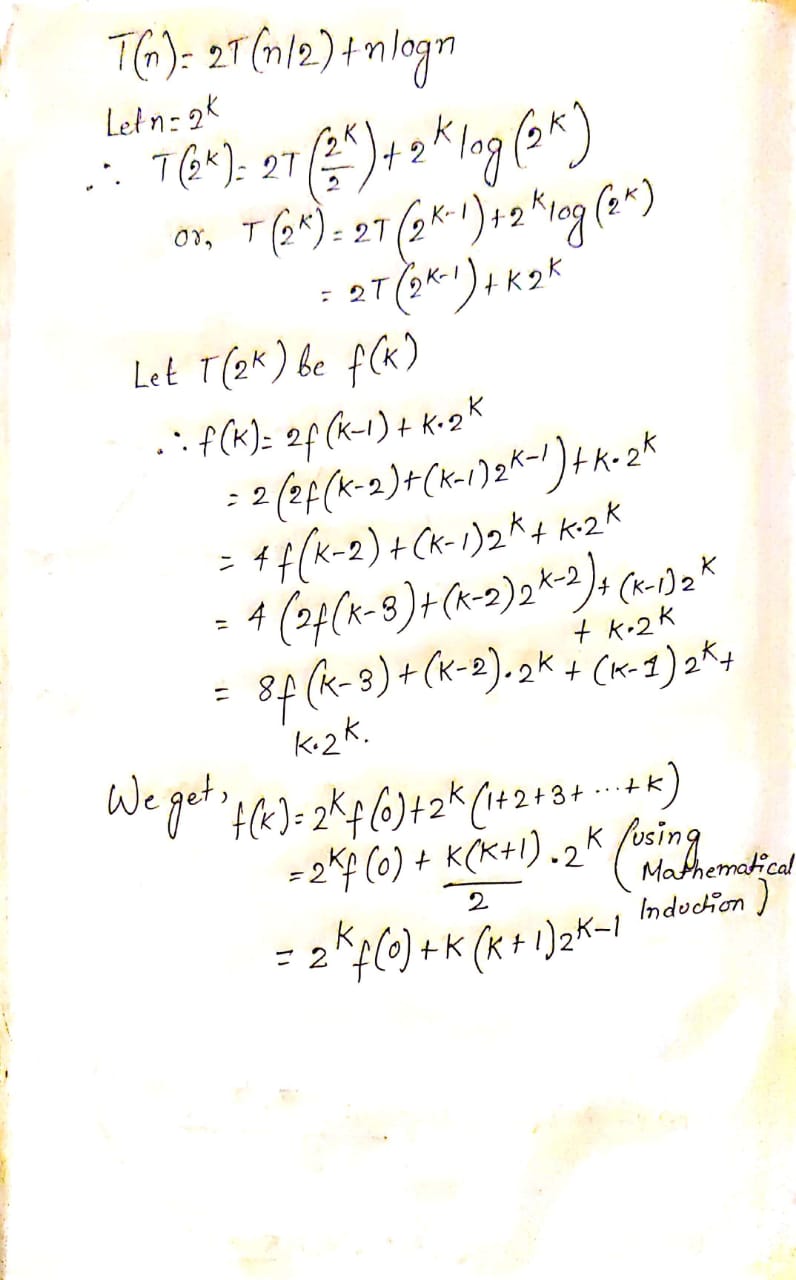 T(n)= 2T(n/2)+nlogn
Let n=2^k
∴ T(2^k)= 2T(2^k/2)+2^k log(2^k)
or, T(2^k)=2T(2^k-1)+2^k log(2^k)
= 2T(2^k-1)+k2^k
Let T(2^k) be f(k)
∴ f(k)= 2f(k-1)+k·2^k
= 2(2f(k-2)+(k-1)2^k-1)+k·2^k
= 4f(k-2)+(k-1)2^k+k·2^k
= 4(2f(k-3)+(k-2)2^k-2)+(k-1)2^k
+ k·2^k
= 8f(k-3)+(k-2)·2^k+(k-1)2^k+
k·2^k.
We get, f(k)=2^k f(0)+2^k(1+2+3+···+k)
=2^k f(0)+k(k+1)/2·2^k (using
Mathematical
Induction)
= 2^k f(0)+k(k+1)2^k-1